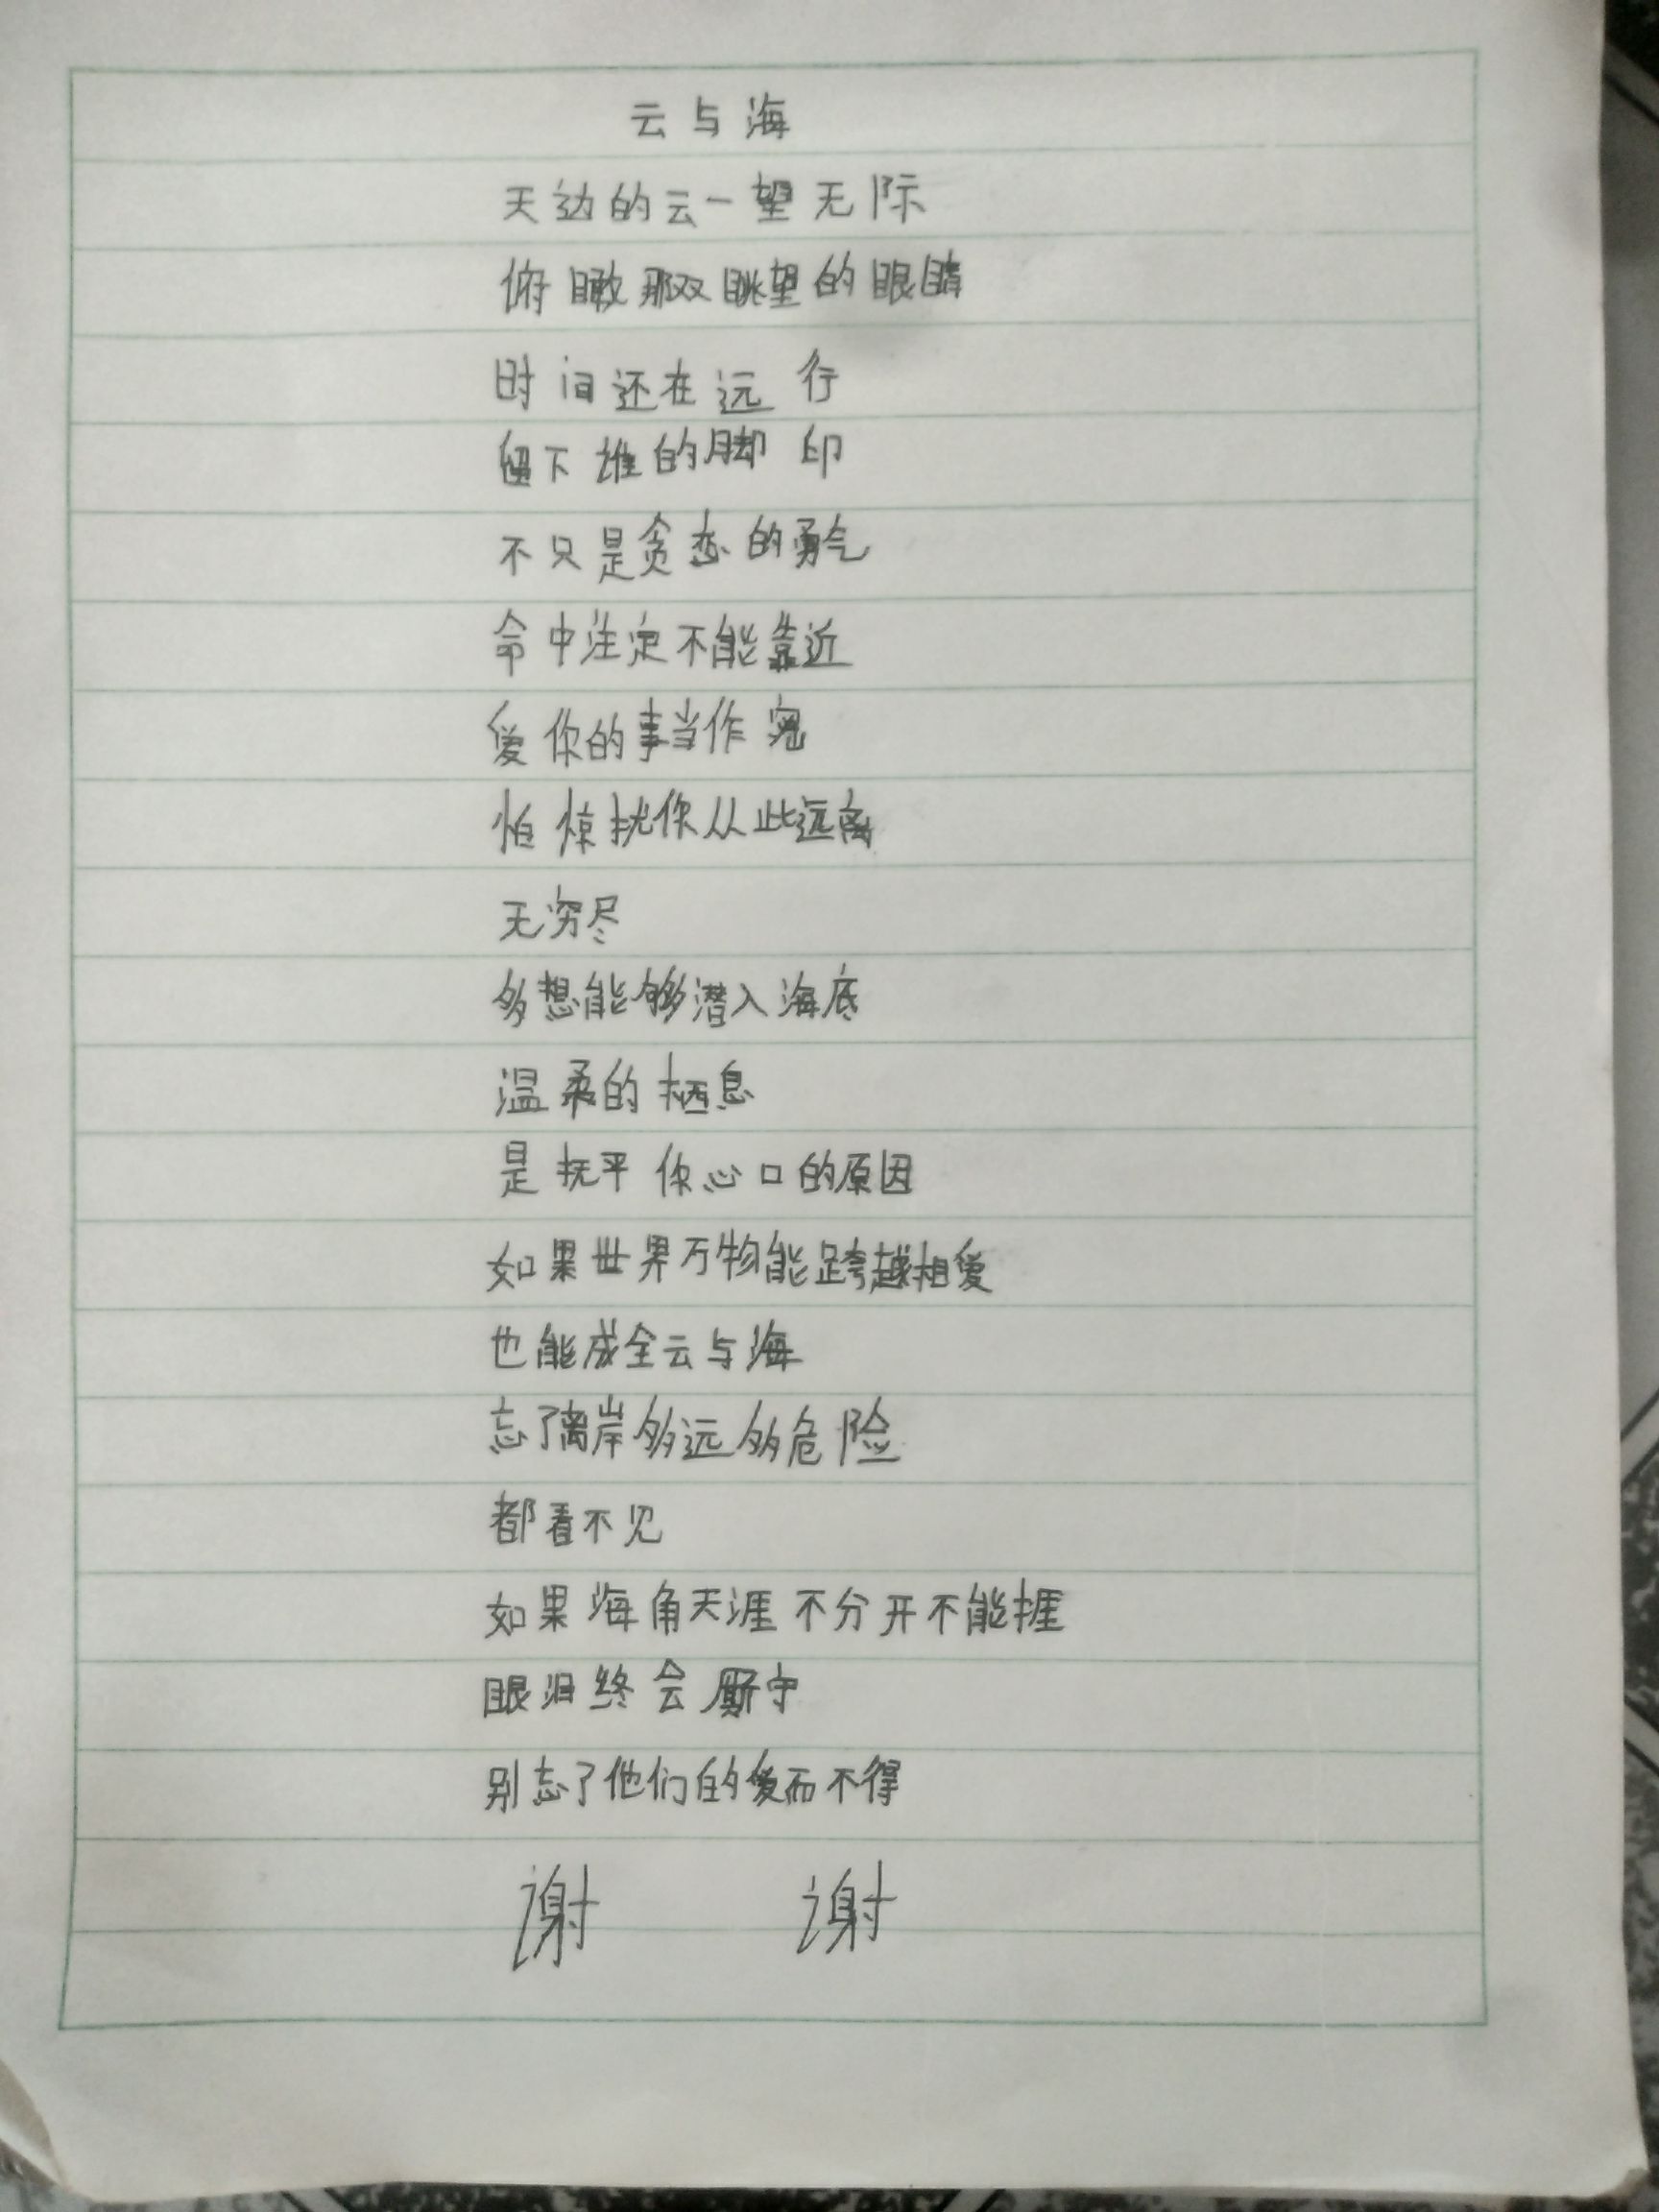 云与海
天边的云一望无际
俯瞰那双眺望的眼睛
时间还在远行
留下谁的脚印
不只是贪恋的勇气
命中注定不能靠近
爱你的事当作
怕惊扰你从此远离
无穷尽
多想能够潜入海底
温柔的栖息
是抚平你心口的原因
如果世界万物能跨越相爱
也能成全云与海
忘了离岸多远多危险
都看不见
如果海角天涯不分开不能捱
眼泪终会厮守
别忘了他们的爱而不得
谢 谢